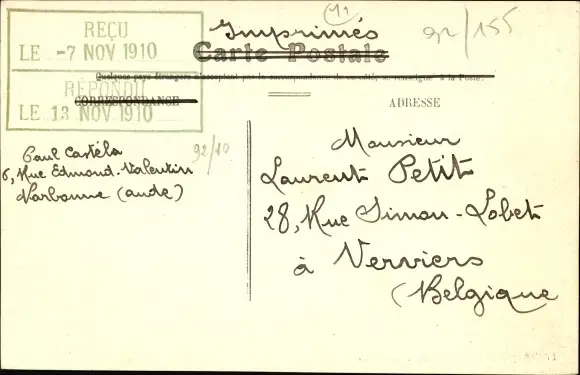 REÇU
LE -7 NOV 1910
RÉPONDU
LE 13 NOV 1910
Imprimés
11
92/155
Carte Postale
Quelques pays étrangers n'acceptant pas la correspondance de ce côté, se renseigner à la Poste.
CORRESPONDANCE
ADRESSE
92/10
Paul Castéla
6, Rue Edmond-Valentin
Narbonne (aude)
Monsieur
Laurent Petit
28, Rue Simon-Lobet
à Verviers
(Belgique